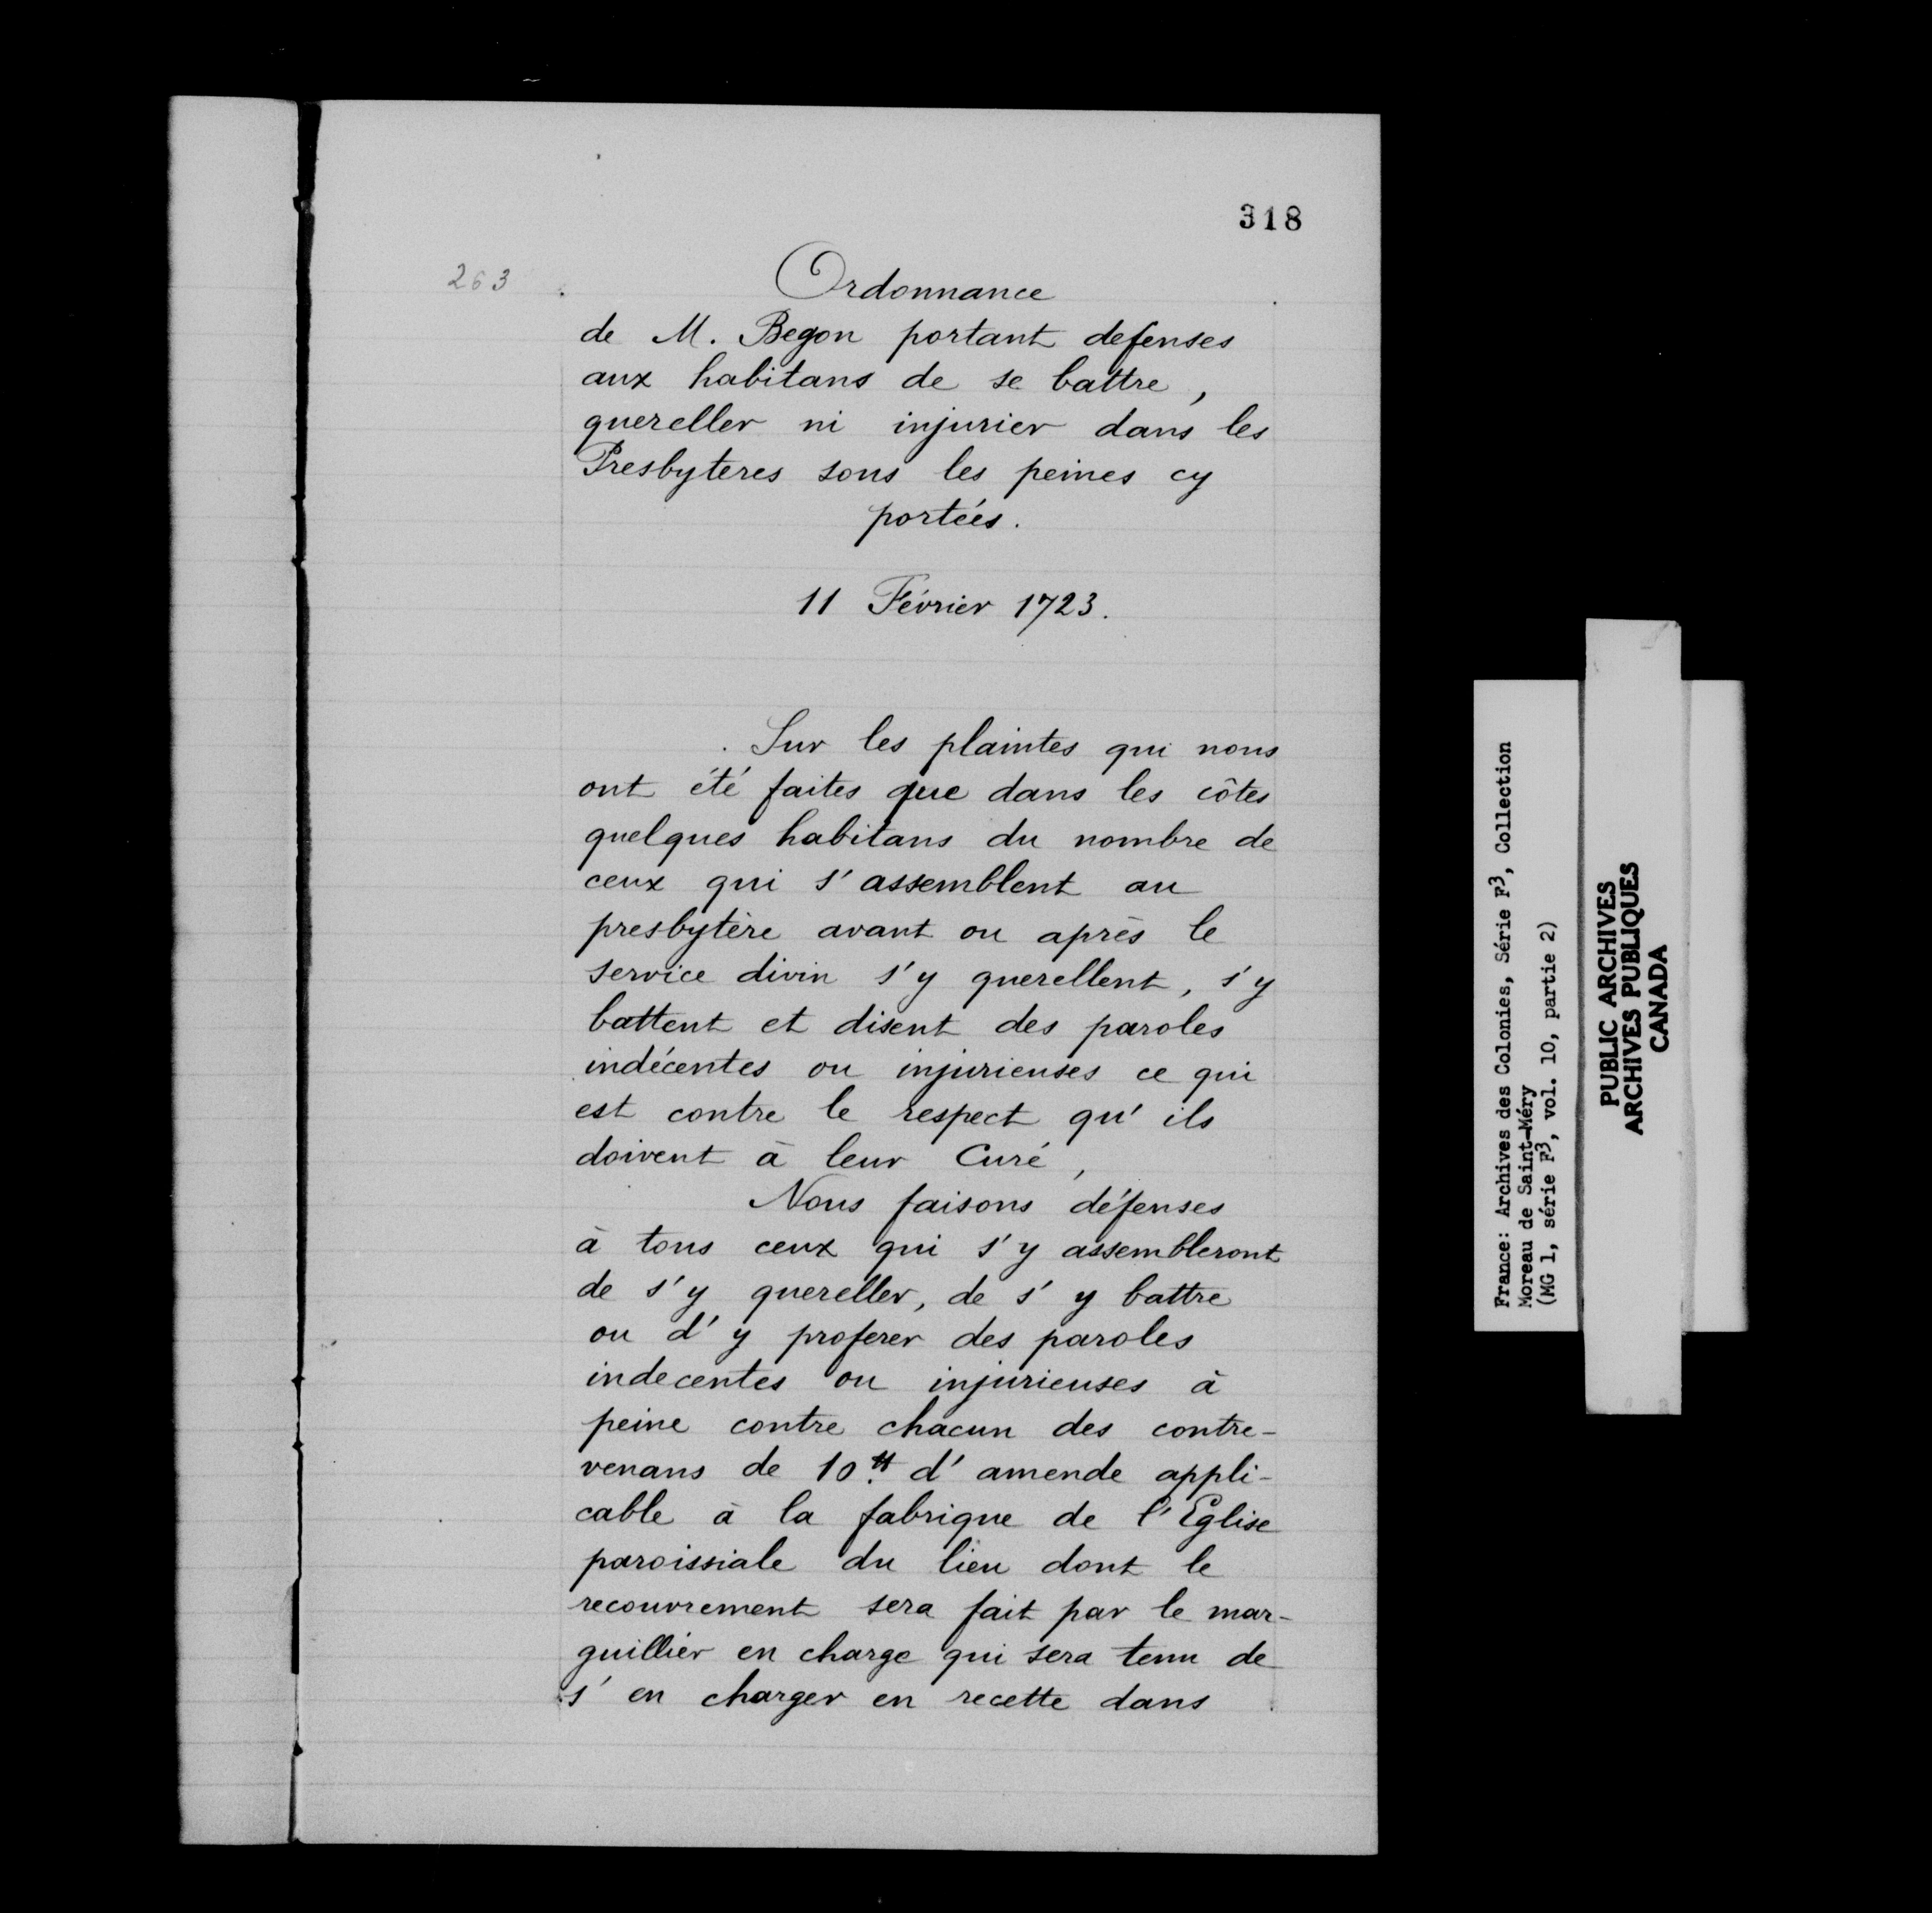 318
263
Ordonnance
de M. Begon portant defenses
aux habitans de se battre,
quereller ni injurier dans les
Presbyteres sous les peines cy
portées.
11 Février 1723.
Sur les plaintes qui nous
ont été faites que dans les côtes
quelques habitans du nombre de
ceux qui s'assemblent au
presbytère avant ou après le
service divin s'y querellent, s'y
battent et disent des paroles
indécentes ou injurieuses ce qui
est contre le respect qu'ils
doivent à leur Curé,
Nous faisons défenses
à tous ceux qui s'y assembleront
de s'y quereller, de s'y battre
ou d'y proferer des paroles
indecentes ou injurieuses à
peine contre chacun des contre-
venans de 10.tt d'amende appli-
cable à la fabrique de l'Eglise
paroissiale du lieu dont le
recouvrement sera fait par le mar-
guillier en charge qui sera tenu de
s'en charger en recette dans
France: Archives des Colonies, Série F3, Collection
Moreau de Saint-Méry
(MG 1, série F3, vol. 10, partie 2)
PUBLIC ARCHIVES
ARCHIVES PUBLIQUES
CANADA